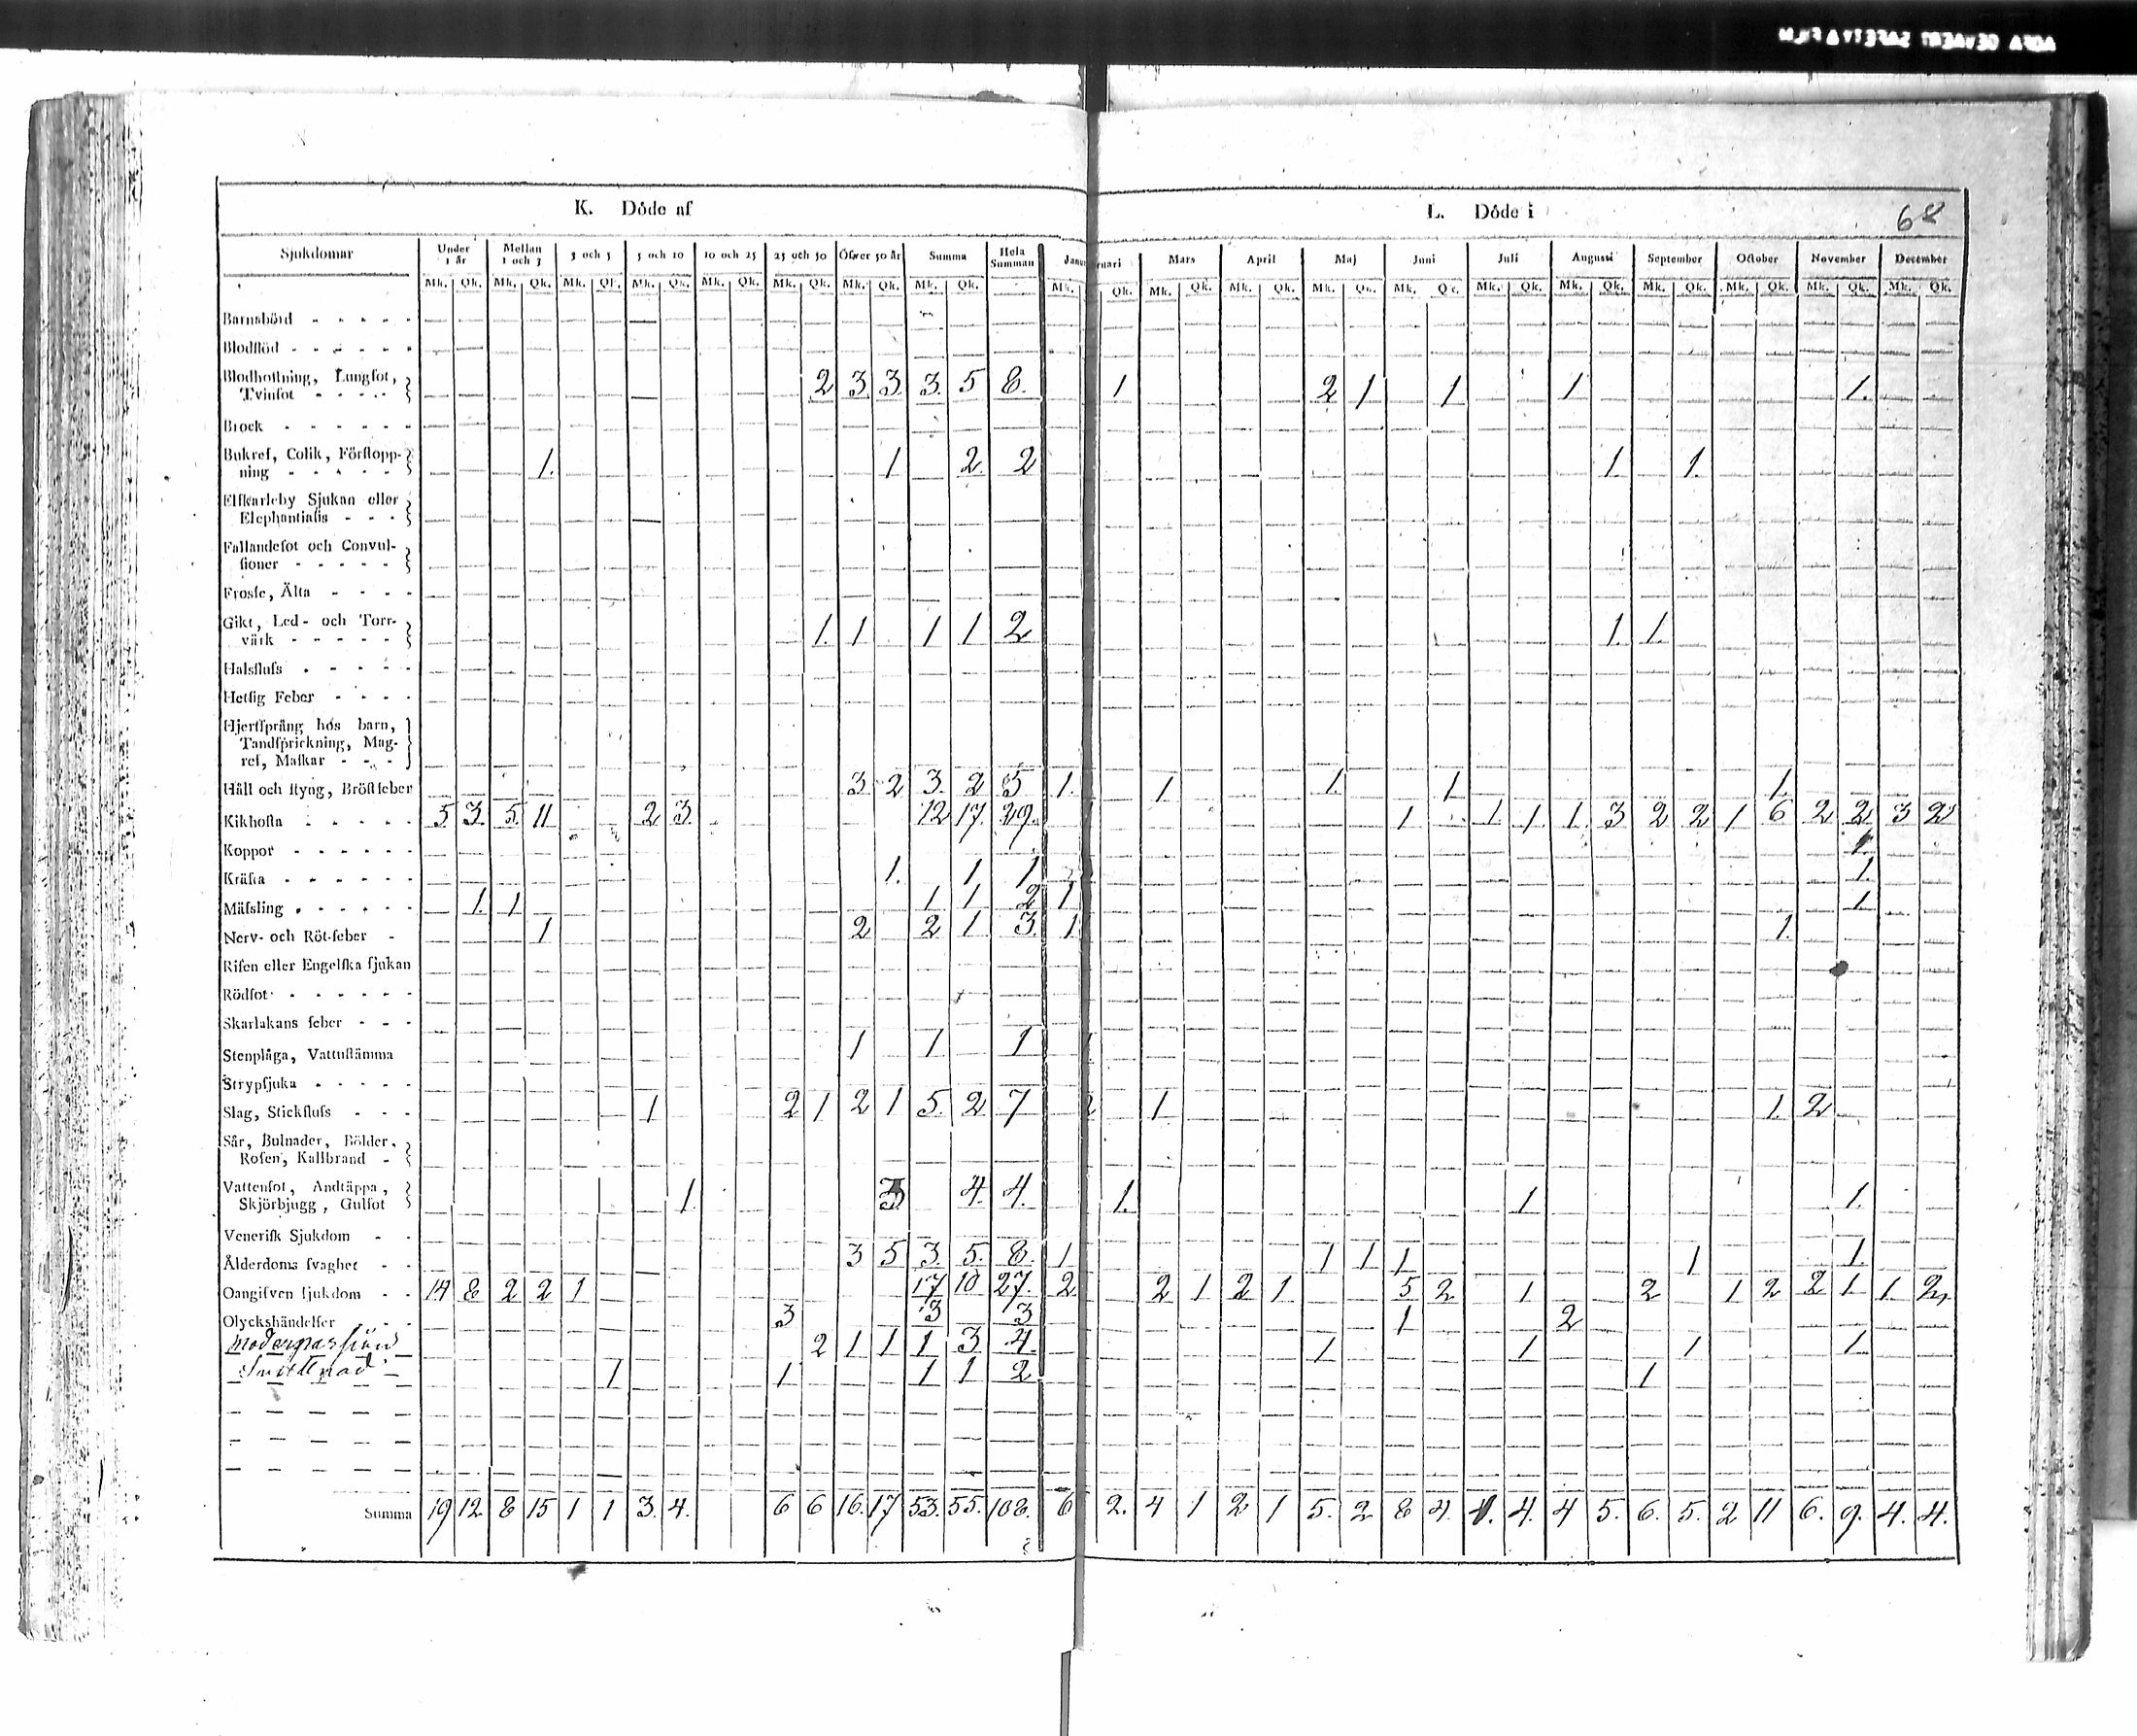 K. Döde af L. Döde i 68
Sjukdomar Under 1 år Mellan 1 och 3 3 och 5 5 och 10 10 och 25 25 och 50 Öfver 50 år Summa Hela Summan Mars April Maj Juni Juli Augusti September October November December
Mk. Qk. Mk. Qk. Mk. Qk. Mk. Qk. Mk. Qk. Mk. Qk. Mk. Qk. Mk. Qk. Mk. Qk. Mk. Qk. Mk. Qk. Mk. Qk. Mk. Qk. Mk. Qk. Mk. Qk. Mk. Qk. Mk. Qk. Mk. Qk. Mk. Qk.
Barnsbörd - - - - -
Blodflöd - - - - - -
Blodhostning, Lungsot,
Tvinsot - - - - 2 3 3 3. 5 8. 1 2 1 1 1 1.
Brock - - - - - -
Bukref, Colik, Förstopp-
ning - - - - - 1. 1 2. 2 1. 1.
Elfkarleby Sjukan eller
Elephantiasis - - -
Fallandesot och Convul-
sioner - - - - -
Frosse, Älta - - - -
Gikt, Led- och Torr-
värk - - - - - 1. 1 1 1 2 1. 1.
Halsfluss - - - - -
Hetsig Feber - - - -
Hjertsprång hos barn,
Tandsprickning, Mag-
ref, Maskar - - -
Håll och styng, Bröstfeber 3 2 3. 2 5 1. 1 1. 1 1.
Kikhosta - - - - - 5 3. 5 11 2 3. 12 17. 29. 1 1. 1. 1. 3 2 2 1 6 2 2 3 2
Koppor - - - - - -
Kräfta - - - - - - 1. 1 1 1.
Mässling - - - - - - 1. 1 1 1 2 1 1
Nerv- och Röt-feber - 1 2 2 1 3. 1 1.
Risen eller Engelska sjukan
Rödsot - - - - - -
Skarlakans feber - - -
Stenplåga, Vattustämma 1 1 1
Strypsjuka - - - - -
Slag, Stickfluss - - - 1 2 1 2 1 5. 2 7 2 1 1. 2
Sår, Bulnader, Bölder,
Rosen, Kallbrand -
Vattensot, Andtäppa,
Skjörbjugg, Gulsot 1. 3 4. 4. 1. 1 1.
Venerisk Sjukdom - -
Ålderdoms svaghet - - 3 5 3. 5. 8. 1 1 1 1 1 1.
Oangifven sjukdom - - 14 8 2 2 1 17 10 27. 2 2 1 2 1 5 2 1 2 1 2 2 1 1. 2
Olyckshändelser - - 3 3 3 1 2
2 1 1 1 3 4. 1 1 1 1
1 1 1 1 2 1
Summa 19 12 8 15 1 1 3. 4. 6 6 16. 17 53. 55. 108. 6 2. 4 1 2 1 5. 2 8 4. 1. 4. 4 5. 6. 5. 2 11 6. 9. 4. 4.